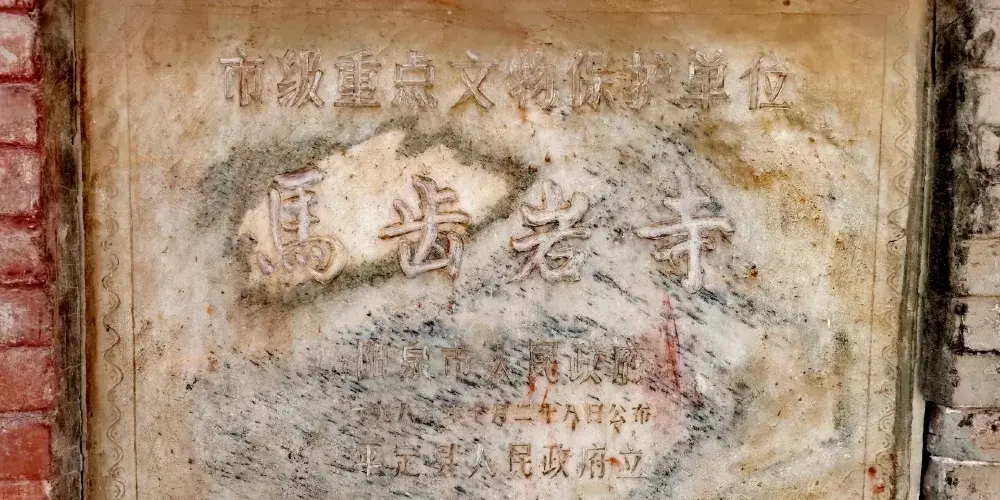 市级重点文物保护单位
馬齿岩寺
阳泉市人民政府
九八 年 月二十八日公布
平定县人民政府立